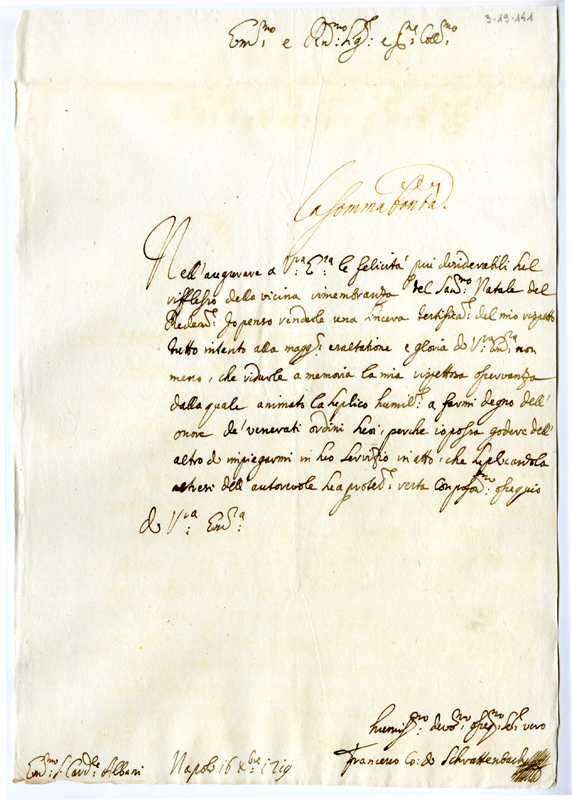 3-19-141
Em:mo e Rnd:mo Sig:r e P:ne Coll:mo
La somma bontà.
Nell'augurare a V:ra Em:za le felicità piu desiderabili nel
riflesso della vicina rimembranza del San:mo Natale del
Redent:re Jo penso renderle una sincera testific:ne del mio rispetto
tutto intento alla magg:r esaltatione e gloria di V:ra Em:za non
meno, che ridurle a memoria la mia rispettosa osservanza
dalla quale animato la suplico humil:te a farmi degno dell'
onore de' venerati ordini suoi, perche io possa godere dell'
altro d'impiegarmi in suo servizio che suplicandola
altresi dell' autorevole sua protett:ne resto con profon:mo ossequio
di V:ra Em:za
humil:mo devo:mo osseq:mo ser:re vero
Francesco Co: di Schrattenbach
Em:mo S: Card:le Albani
Napoli 16 Xbre 1719